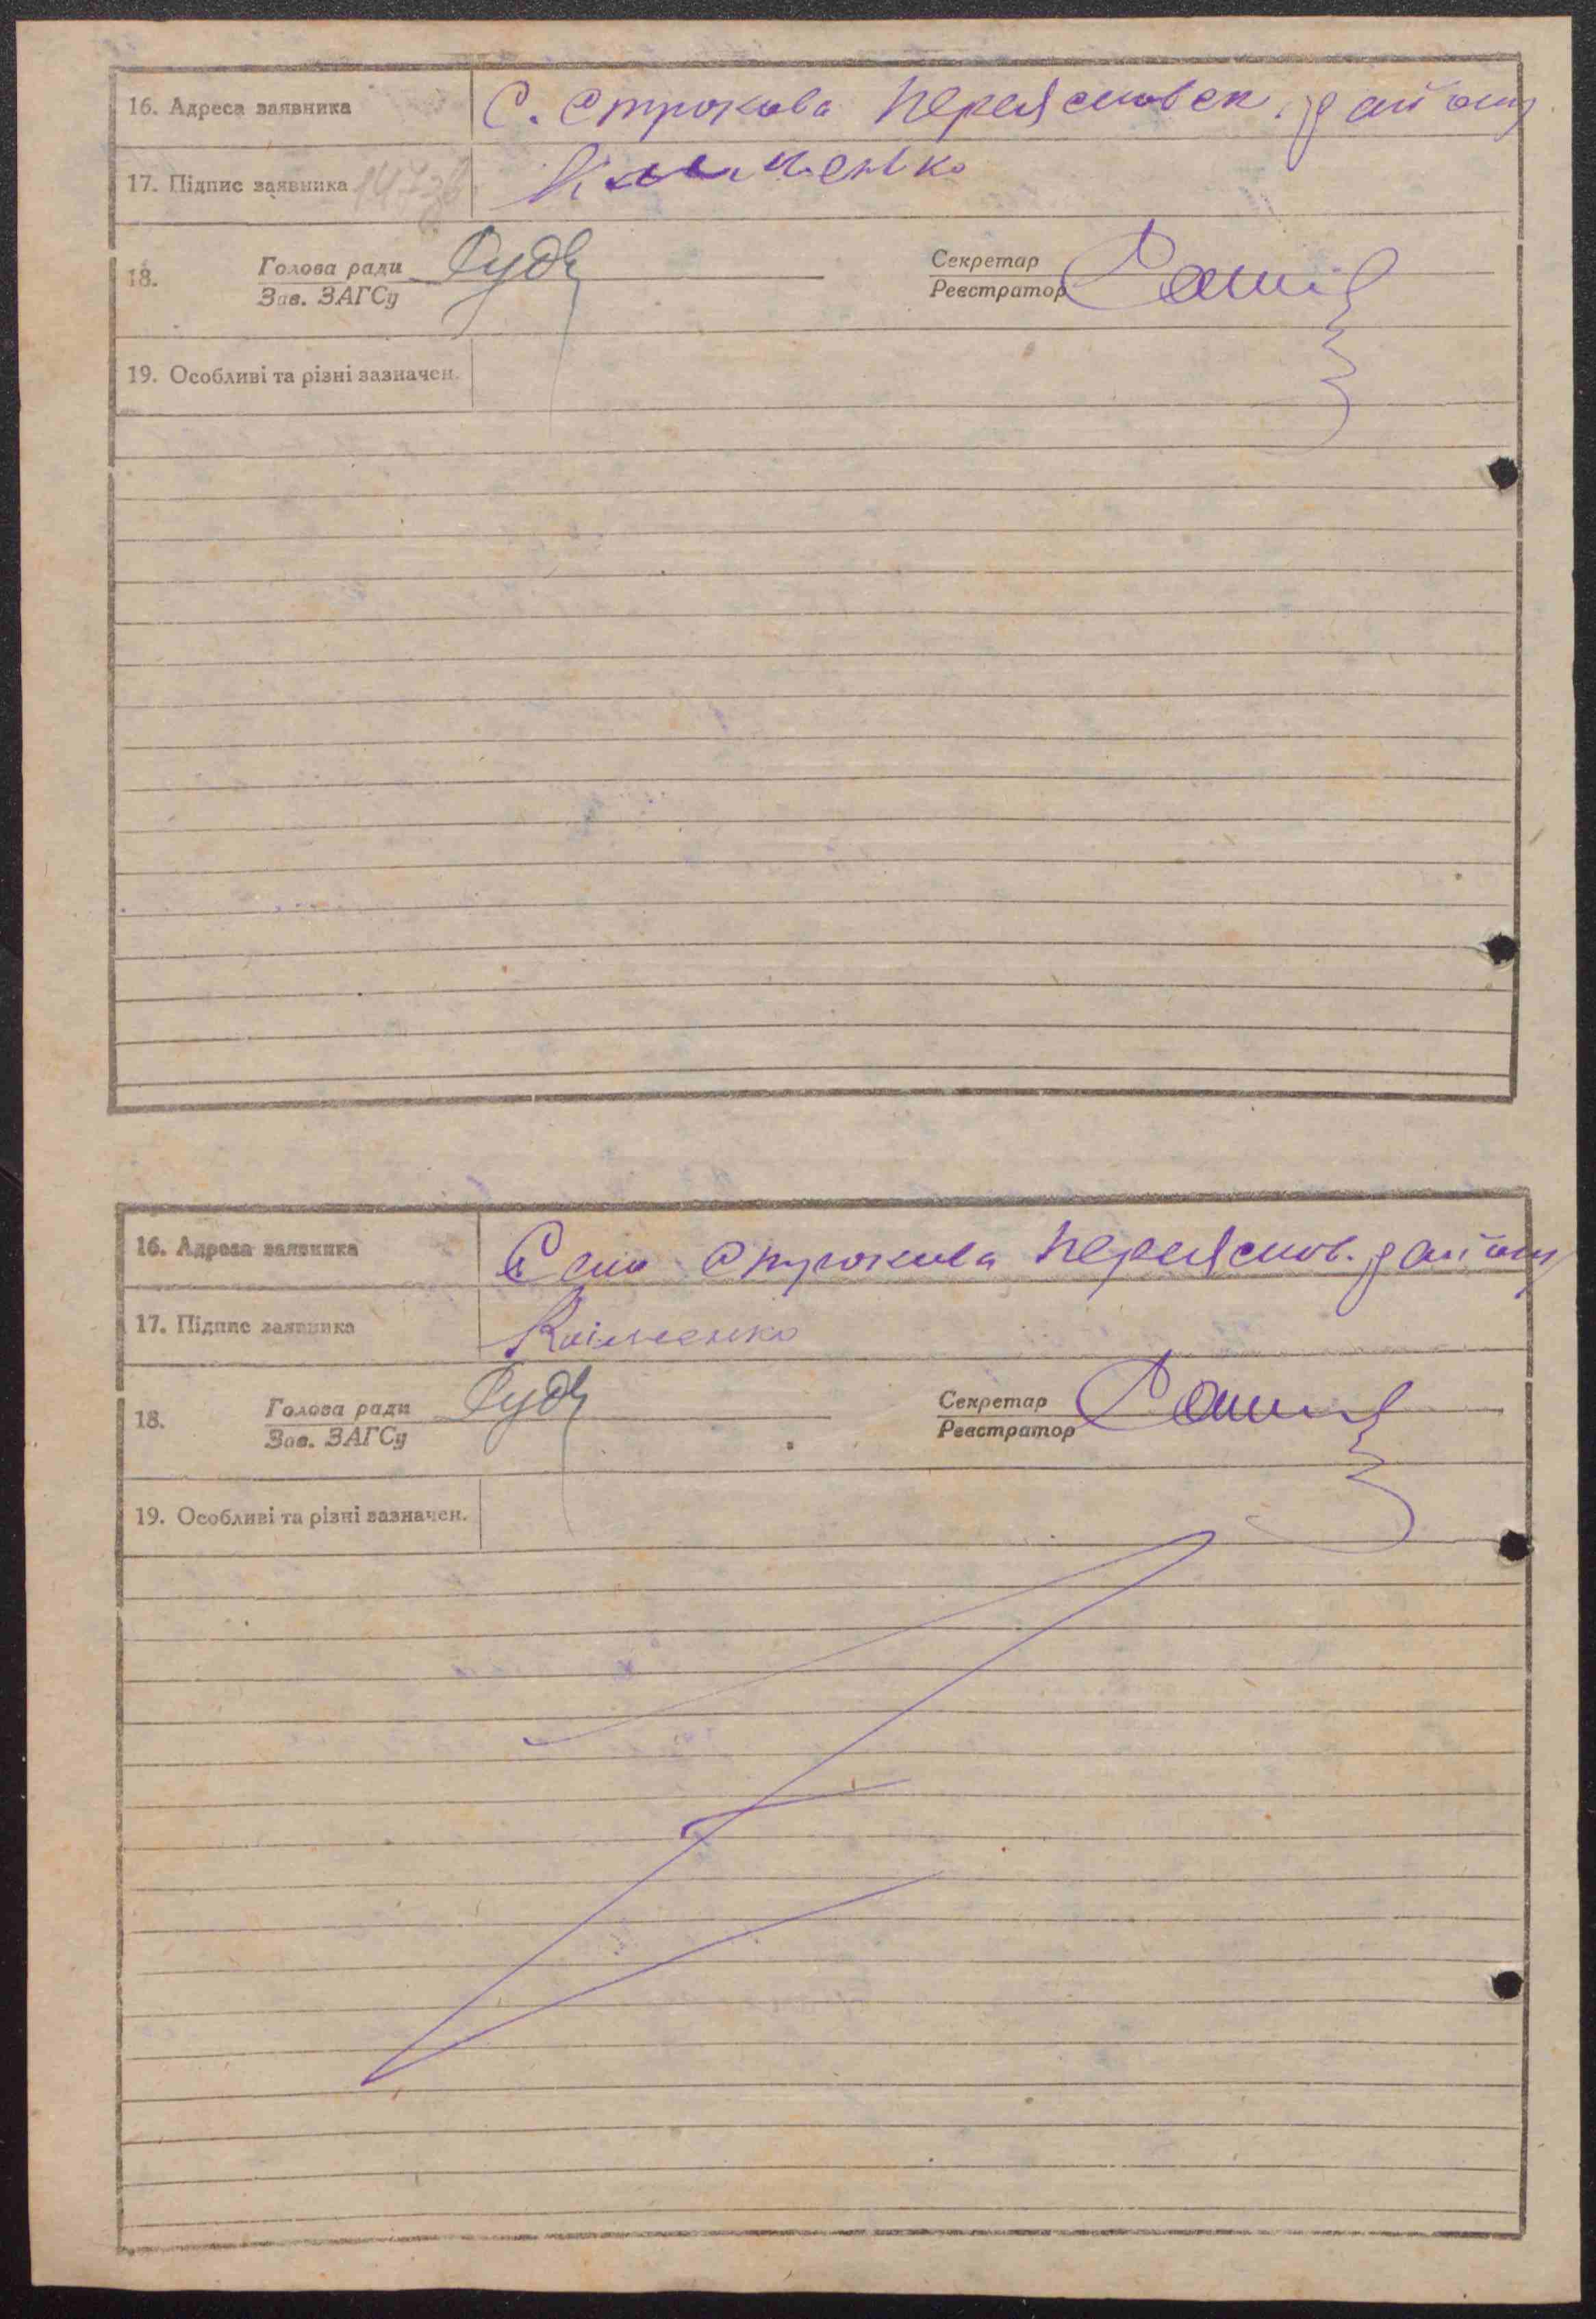 16. Адреса заявника С. Строкова Переясловск. району
17. Підпис заявника 147зв. Клименко
18. Голова ради Секретар
Зав. ЗАГСу Реєстратор
19. Особливі та різні зазначен.
16. Адреса заявника Село Строкова Переяслов. району
17. Підпис заявника Кліменко
18. Голова ради Секретар
Зав. ЗАГСу Реєстратор
19. Особливі та різні зазначен.